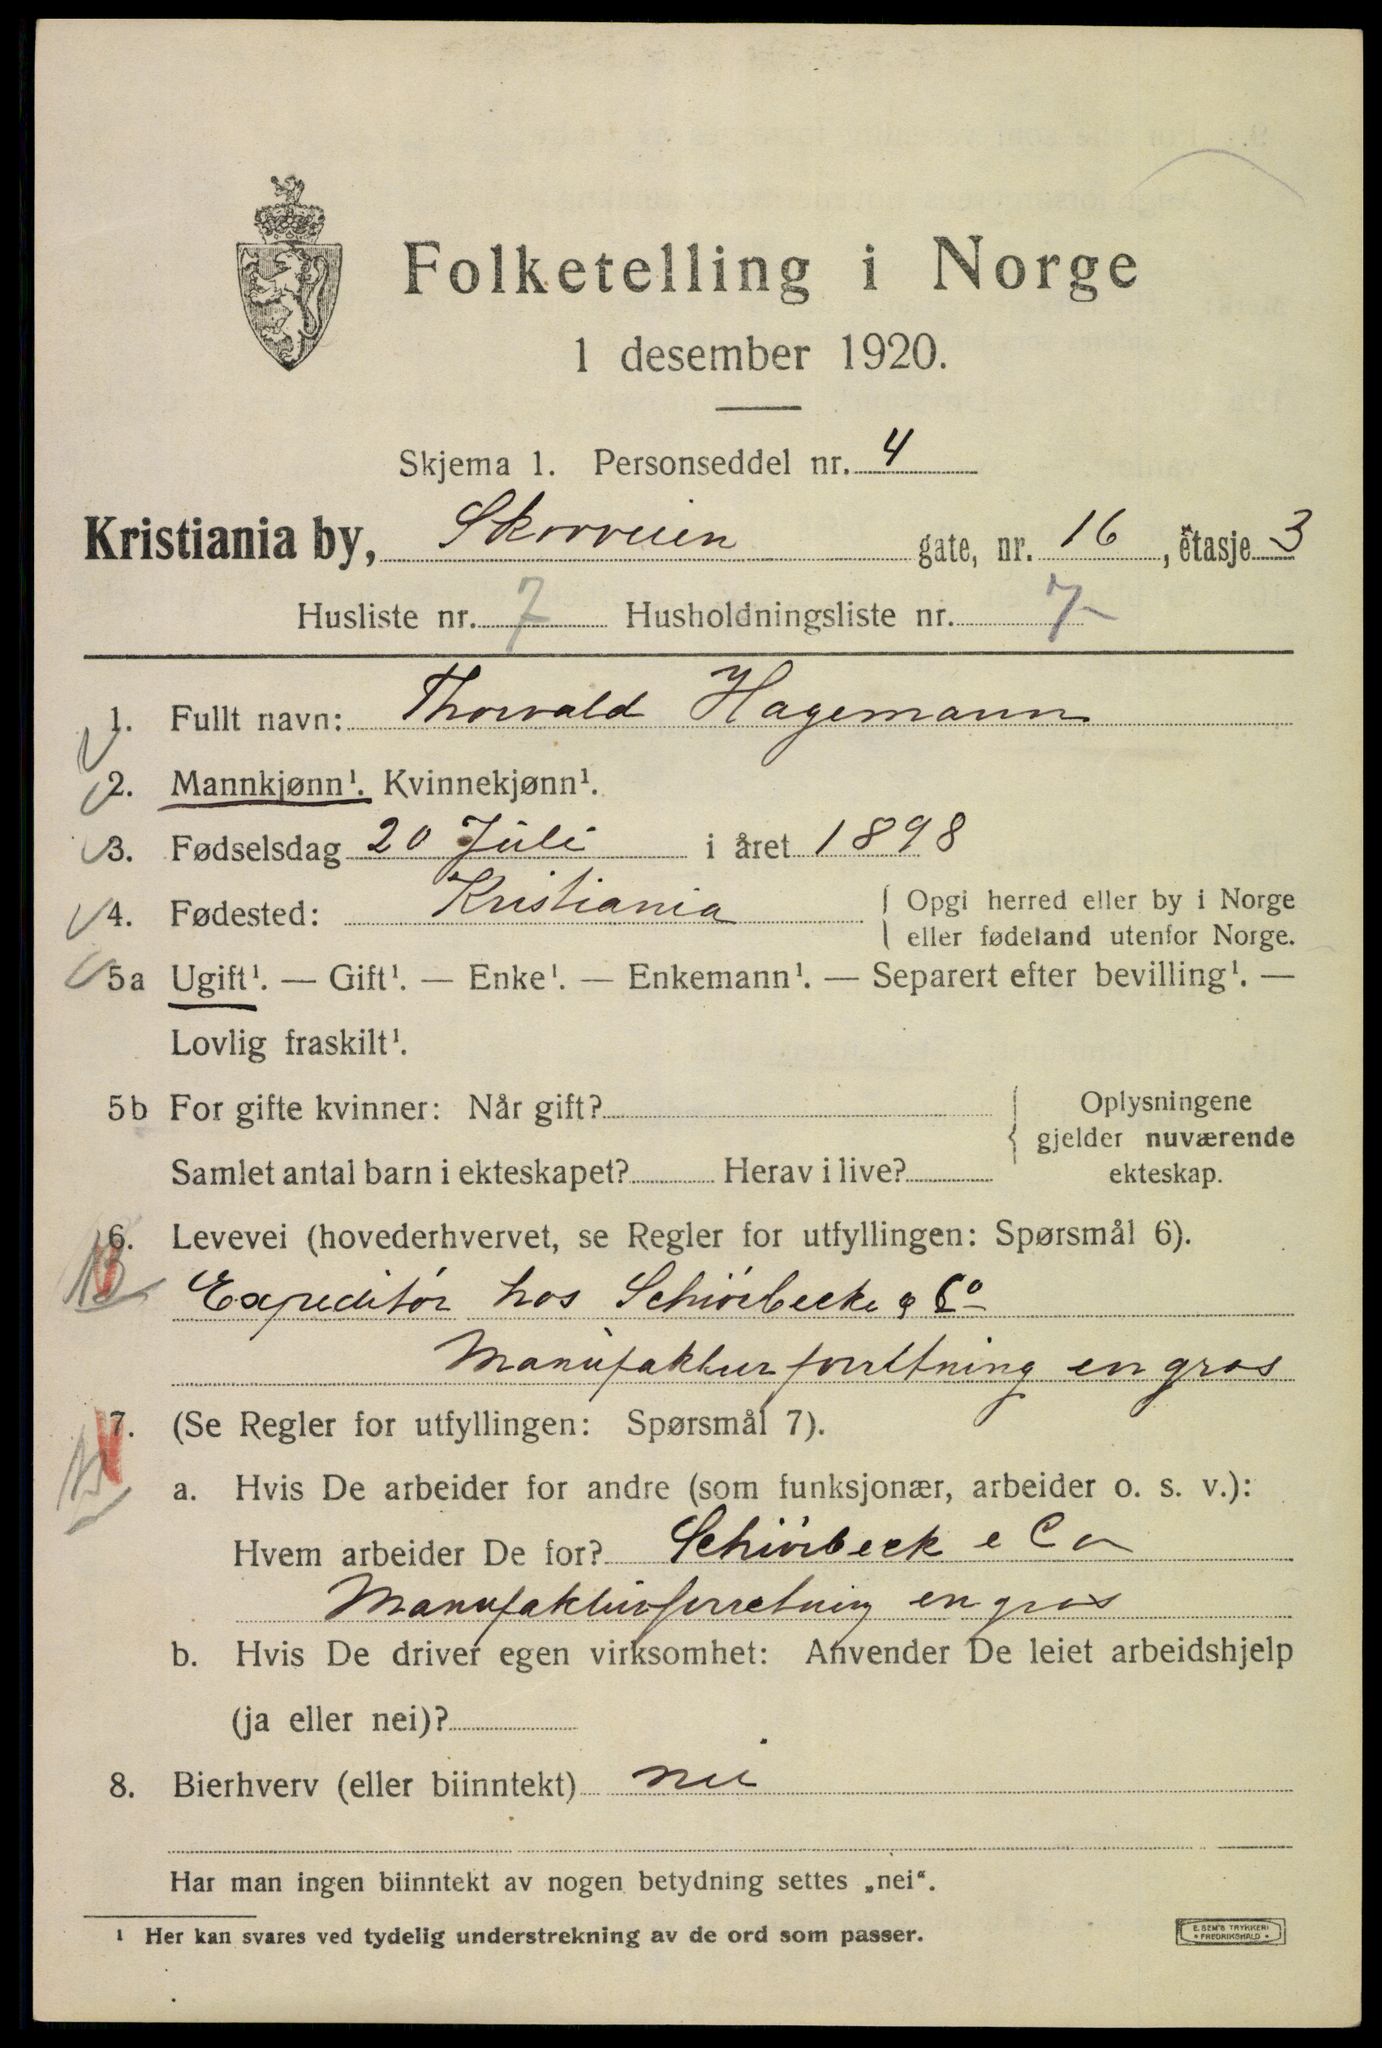 Folketelling i Norge
1 desember 1920.
Skjema 1. Personseddel nr. 4
Kristiania by, Skovveien gate, nr. 16, etasje 3
Husliste nr. 7 Husholdningsliste nr. 7
1. Fullt navn: Thorvald Hagemann
2. Mannkjønn¹. Kvinnekjønn¹.
3. Fødselsdag 20 Juli i året 1898
4. Fødested: Kristiania { Opgi herred eller by i Norge
eller fødeland utenfor Norge.
5a Ugift¹. — Gift¹. — Enke¹. — Enkemann¹. — Separert efter bevilling¹. —
Lovlig fraskilt¹.
5b For gifte kvinner: Når gift? Oplysningene
gjelder nuværende
Samlet antal barn i ekteskapet? Herav i live? ekteskap.
6. Levevei (hovederhvervet, se Regler for utfyllingen: Spørsmål 6).
Expeditør hos Schiørbecke & Co
Manufakturforrettning en gros
7. (Se Regler for utfyllingen: Spørsmål 7).
a. Hvis De arbeider for andre (som funksjonær, arbeider o. s. v.):
Hvem arbeider De for? Schiørbeck & Co
Manufakturforretning en gros
b. Hvis De driver egen virksomhet: Anvender De leiet arbeidshjelp
(ja eller nei)?
8. Bierhverv (eller biinntekt) nei
Har man ingen biinntekt av nogen betydning settes „nei“.
¹ Her kan svares ved tydelig understrekning av de ord som passer.
E. SEM'S TRYKKERI
• FREDRIKSHALD •